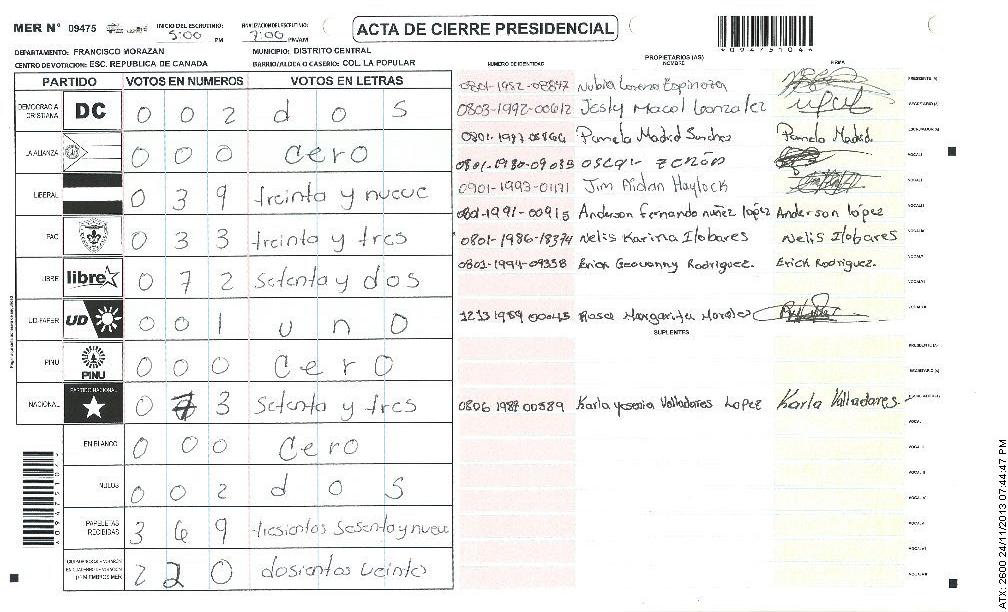 MER N° 09475 INICIO DEL ESCRUTINIO: 5:00 PM FINALIZACION ESCRUTINIO: 7:00 PM/AM ACTA DE CIERRE PRESIDENCIAL
DEPARTAMENTO: FRANCISCO MORAZAN MUNICIPIO: DISTRITO CENTRAL
CENTRO DE VOTACION: ESC. REPUBLICA DE CANADA BARRIO/ALDEA O CASERIO: COL. LA POPULAR
PARTIDO VOTOS EN NUMEROS VOTOS EN LETRAS
DEMOCRACIA CRISTIANA DC 0 0 2 dos
LA ALIANZA 0 0 0 cero
LIBERAL 0 3 9 treinta y nueve
PAC 0 3 3 treinta y tres
LIBRE libre 0 7 2 setenta y dos
UD-FAPER UD 0 0 1 uno
PINU PINU 0 0 0 Cero
NACIONAL PARTIDO NACIONAL 0 7 3 setenta y tres
EN BLANCO 0 0 0 Cero
NULOS 0 0 2 dos
PAPELETAS RECIBIDAS 3 6 9 tresientos sesenta y nueve
2 2 0 dosientos veinte
NUMERO DE IDENTIDAD PROPIETARIOS (AS) NOMBRE FIRMA
Nubia Lorena Espinoza PRESIDENTE (A)
0803-1992-00612 Jesly Macol Gonzalez SECRETARIO (A)
Pamela Madrid Sanchez Pamela Madrid ESCRUTADOR (A)
0801-1980-09083 oscar zerón VOCAL I
0901-1993-01191 Jim Aidan Haylock
0801-1991-00915 Anderson Fernando nuñez lopez Anderson lópez
0801-1986-18374 Nelis Karina Ilobares Nelis Ilobares
0801-1994-09338 Erick Geovanny Rodriguez. Erick Rodriguez.
1213 1989 00045 Rosa Margarita Morales
SUPLENTES
PRESIDENTE (A)
SECRETARIO (A)
0806 1987 00589 Karla yesenia Valladares Lopez Karla Valladares.
09475104
ATX: 2600 24/11/2013 07:44:47 PM